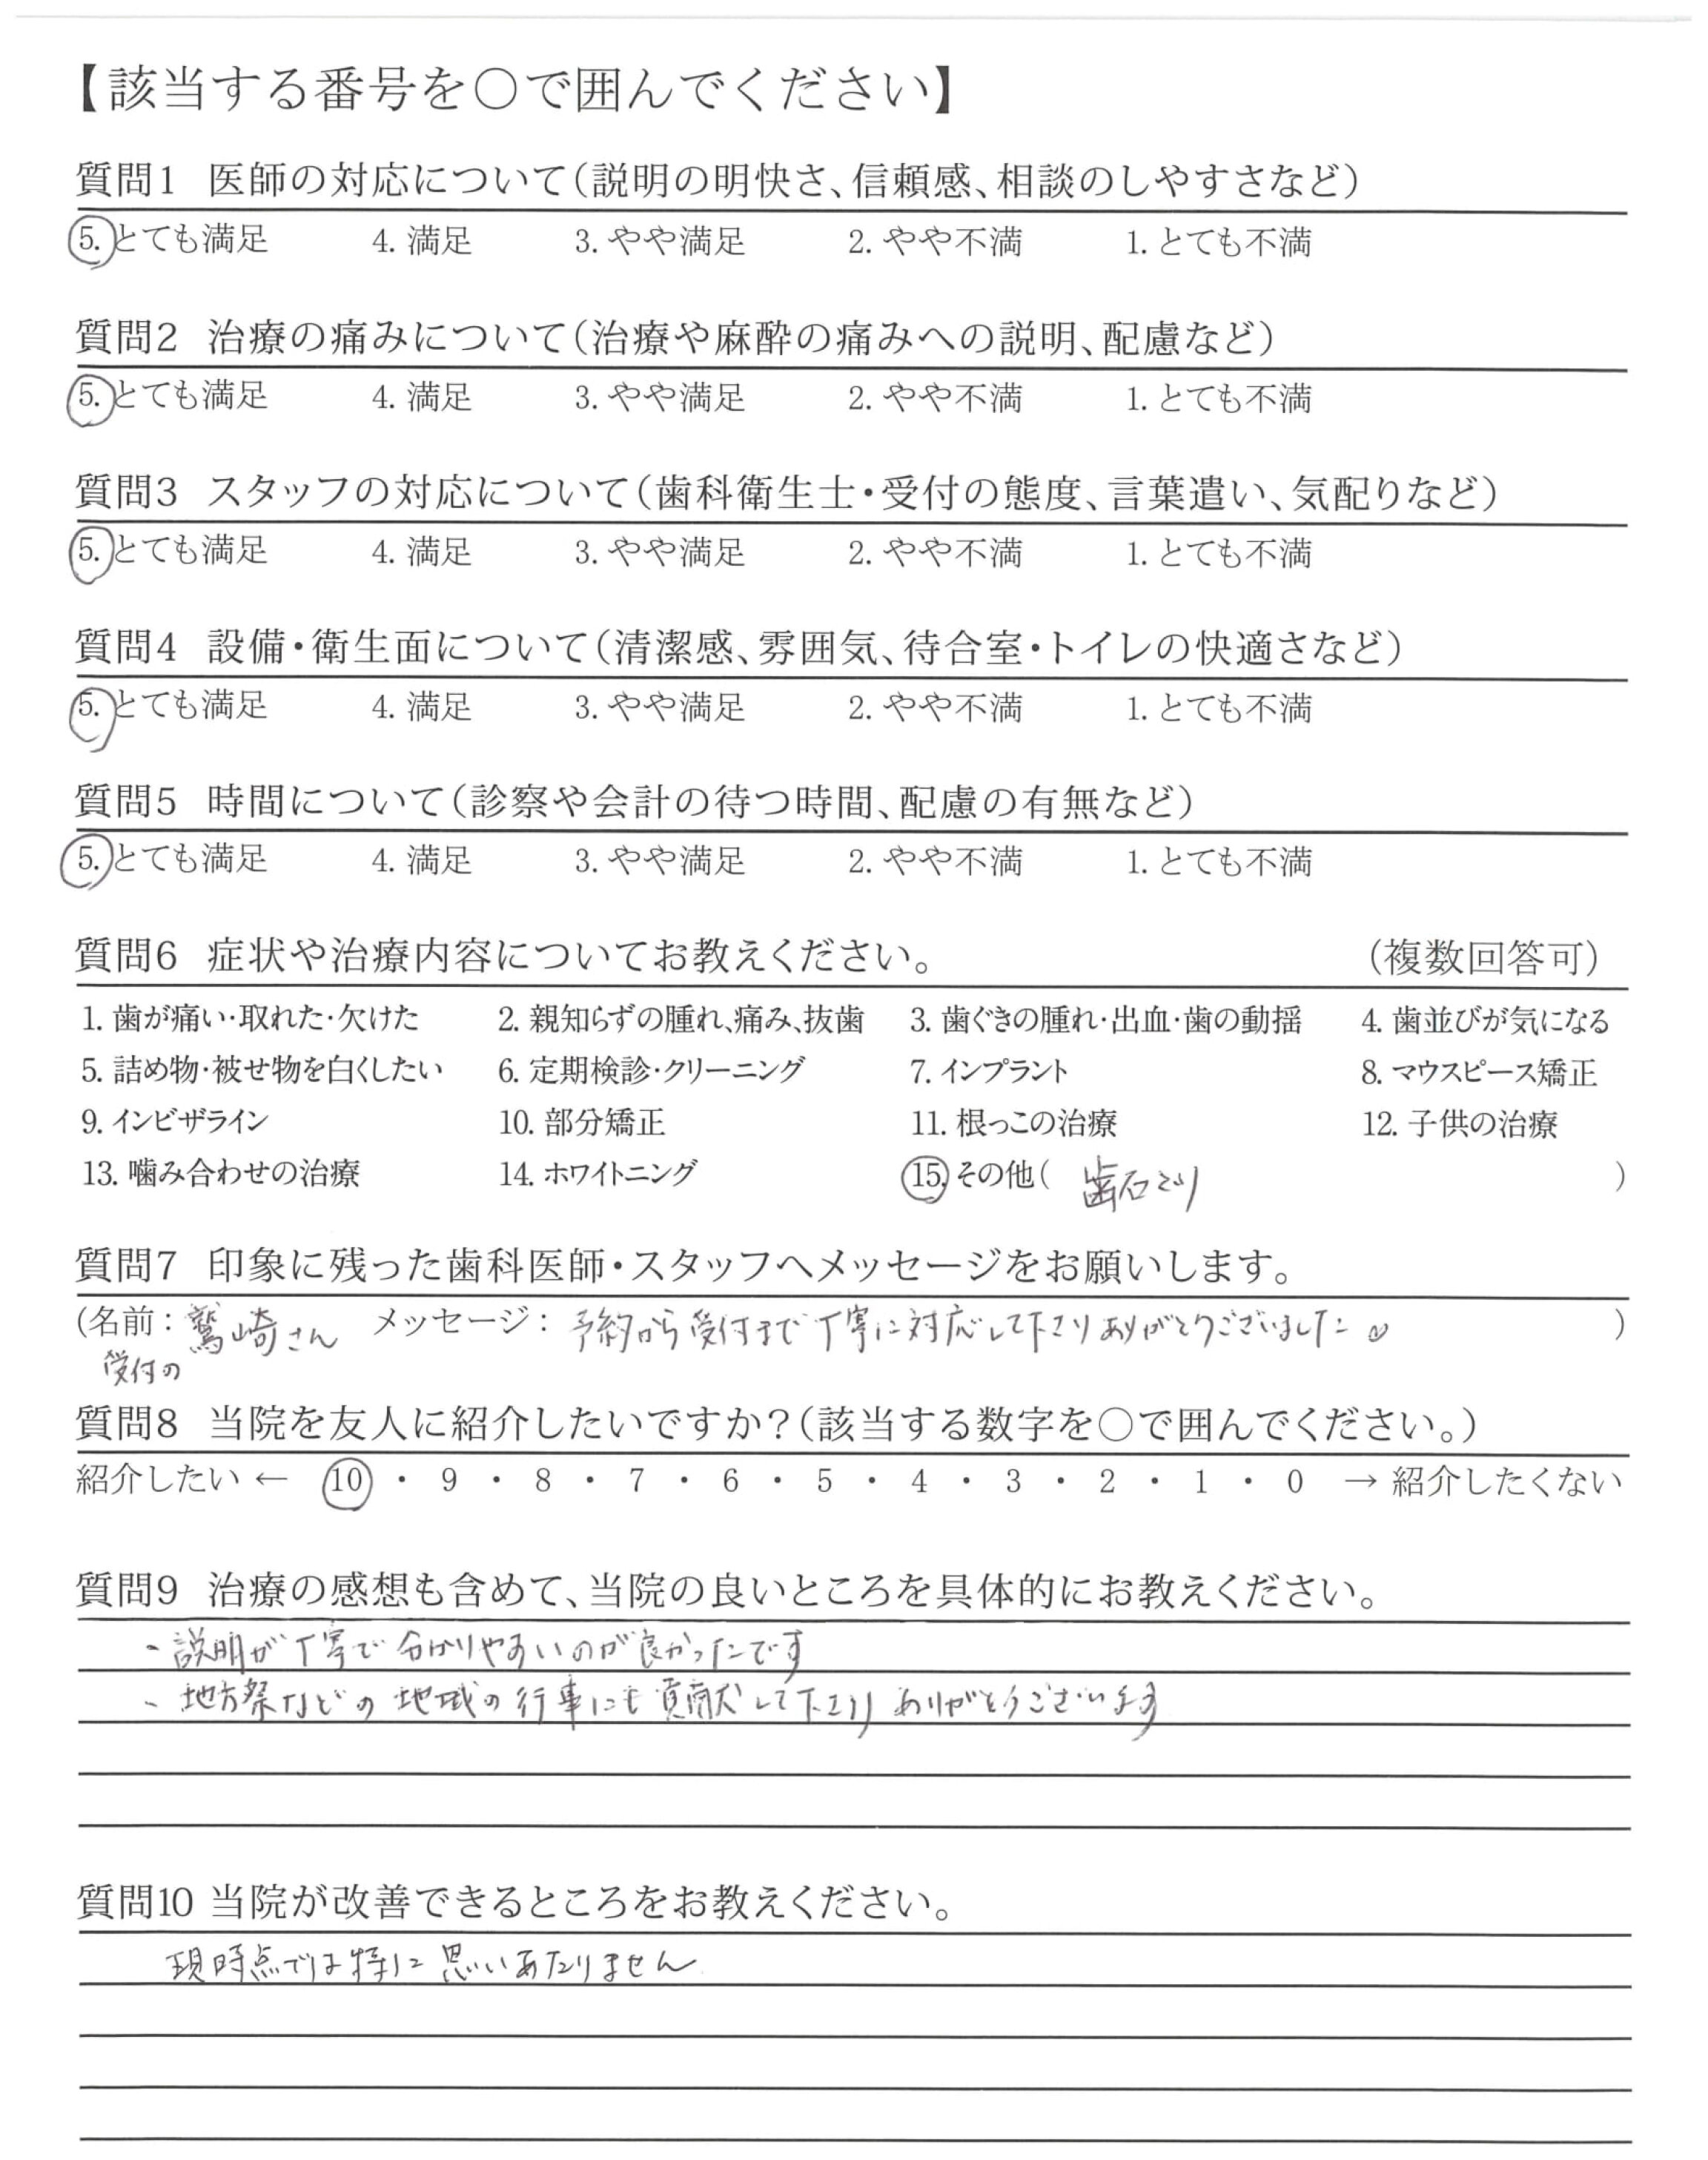 【該当する番号を○で囲んでください】
質問1 医師の対応について(説明の明快さ、信頼感、相談のしやすさなど)
5. とても満足 4. 満足 3. やや満足 2. やや不満 1. とても不満
質問2 治療の痛みについて(治療や麻酔の痛みへの説明、配慮など)
5. とても満足 4. 満足 3. やや満足 2. やや不満 1. とても不満
質問3 スタッフの対応について(歯科衛生士・受付の態度、言葉遣い、気配りなど)
5. とても満足 4. 満足 3. やや満足 2. やや不満 1. とても不満
質問4 設備・衛生面について(清潔感、雰囲気、待合室・トイレの快適さなど)
5. とても満足 4. 満足 3. やや満足 2. やや不満 1. とても不満
質問5 時間について(診察や会計の待つ時間、配慮の有無など)
5. とても満足 4. 満足 3. やや満足 2. やや不満 1. とても不満
質問6 症状や治療内容についてお教えください。 (複数回答可)
1. 歯が痛い・取れた・欠けた 2. 親知らずの腫れ、痛み、抜歯 3. 歯ぐきの腫れ・出血・歯の動揺 4. 歯並びが気になる
5. 詰め物・被せ物を白くしたい 6. 定期検診・クリーニング 7. インプラント 8. マウスピース矯正
9. インビザライン 10. 部分矯正 11. 根っこの治療 12. 子供の治療
13. 噛み合わせの治療 14. ホワイトニング 15. その他( 歯石とり )
質問7 印象に残った歯科医師・スタッフへメッセージをお願いします。
(名前: 鷲崎さん メッセージ: 予約から受付まで丁寧に対応して下さりありがとうございました )
受付の
質問8 当院を友人に紹介したいですか?(該当する数字を○で囲んでください。)
紹介したい ← 10 ・ 9 ・ 8 ・ 7 ・ 6 ・ 5 ・ 4 ・ 3 ・ 2 ・ 1 ・ 0 → 紹介したくない
質問9 治療の感想も含めて、当院の良いところを具体的にお教えください。
・説明が丁寧で分かりやすいのが良かったです
・地方祭などの地域の行事にも貢献して下さりありがとうございます
質問10 当院が改善できるところをお教えください。
現時点では特に思いあたりません